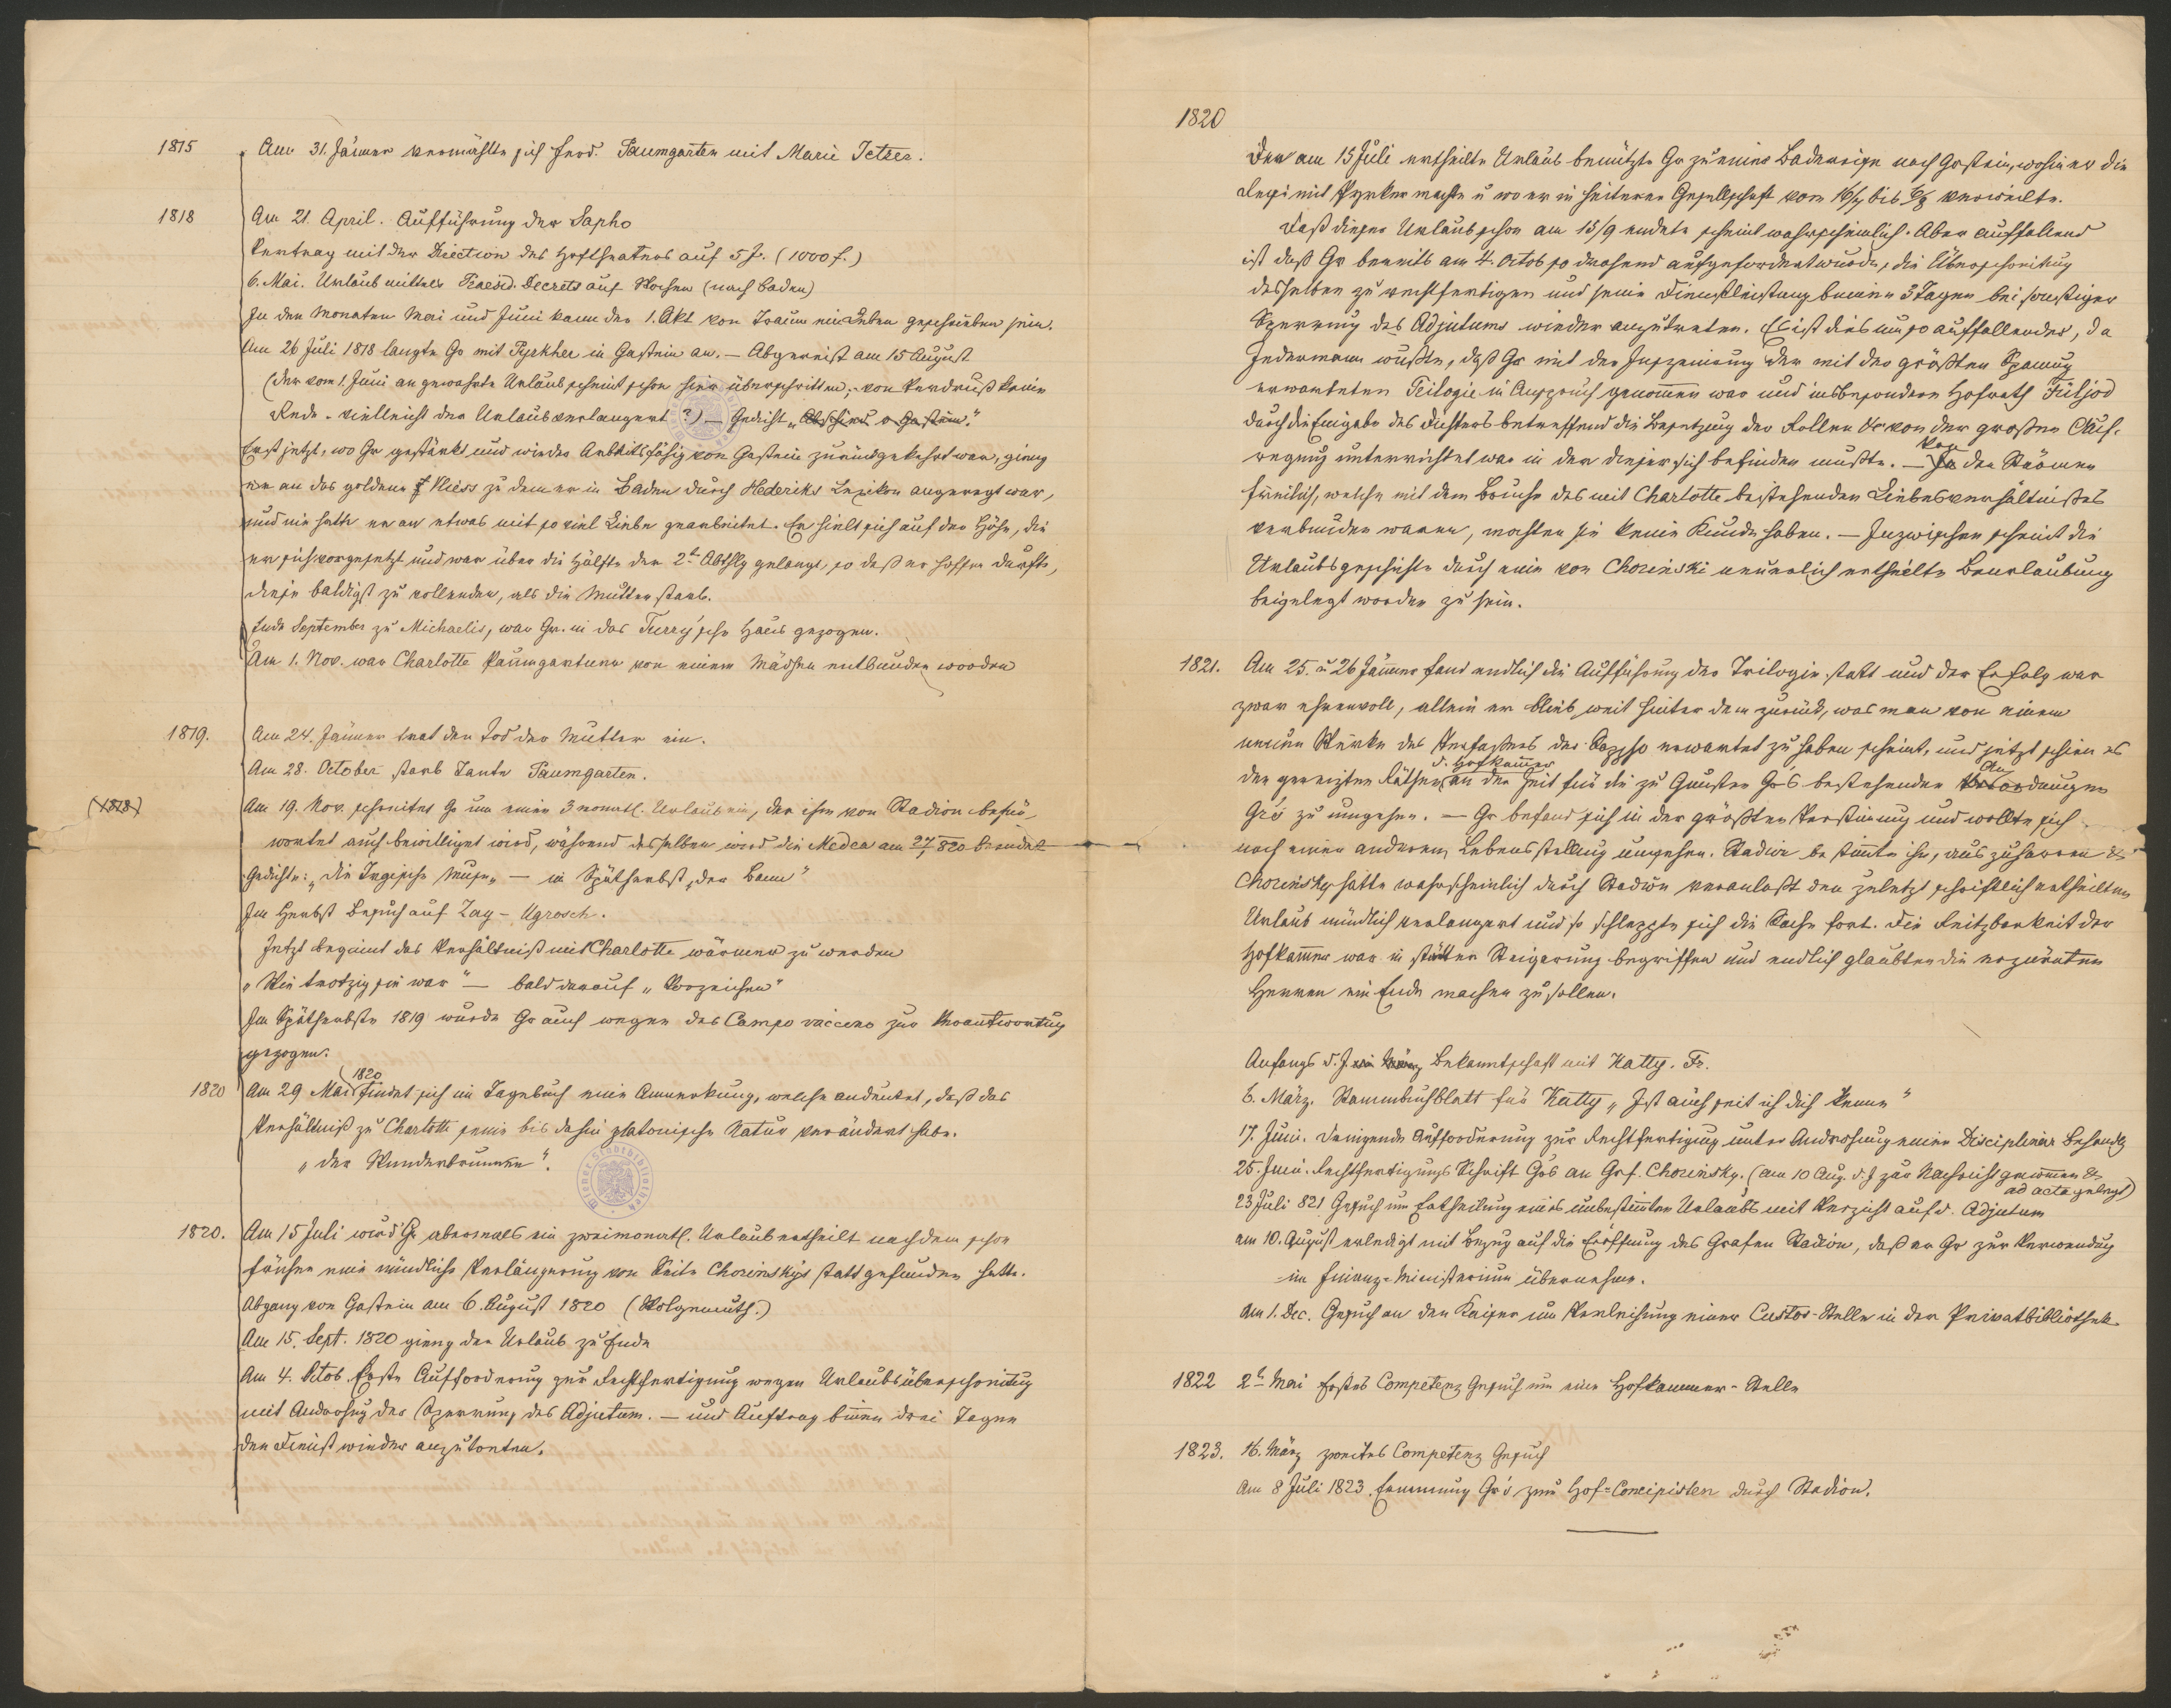 1815 Am 31. Jänner vermählte sich Ferd. Paumgarten mit Marie Jetzer.
1818 Am 21. April. Aufführung der Sapho
Vertrag mit der Direction des Hoftheaters auf 5 J. (1000 f.)
6. Mai. Urlaub mittels Praesid. Decrets auf Wochen (nach Baden)
In den Monaten Mai und Juni kann der 1. Akt von Traum ein Leben geschrieben sein.
Am 26 Juli 1818 langte Gr mit Pyrkher in Gastein an. – Abgereist am 15 August
(der vom 1. Juni an gewährte Urlaub scheint schon hier überschritten; von Verdruß keine
Rede – vielleicht der Urlaub verlängert?) – Gedicht „Abschied v Gastein“.
Erst jetzt, wo Gr gestärkt und wieder arbeitsfähig von Gastein zurückgekehrt war, gieng
er an das goldene Vliess zu dem er in Baden durch Hederiks Lexikon angeregt war,
und nie hatte er an etwas mit so viel Liebe gearbeitet. Er hielt sich auf der Höhe, die
er sich vorgesetzt und war über die Hälfte der 2t Abthlg gelangt, so daß er hoffen durfte,
diese baldigst zu vollenden, als die Mutter starb.
Ende September zu Michaelis, war Gr. in das Turry'sche Haus gezogen.
Am 1. Nov. war Charlotte Paumgarten von einem Mädchen entbunden worden
1819. Am 24. Jänner trat der Tod der Mutter ein.
Am 28. October starb Tante Paumgarten.
(1818) Am 19. Nov. schreitet Gr um einen 3 monatl. Urlaub ein, der ihm von Stadion befür-
wortet auch bewilligt wird, während desselben wird die Medea am 27/1 820 beendet
Gedichte: „Die tragische Muse“ – im Spätherbst „Der Bann“
Im Herbst Besuch auf Zay-Ugrosch.
Jetzt beginnt das Verhältniß mit Charlotte wärmer zu werden
„Wie trotzig sie war“ – bald darauf „Vorzeichen“
Im Spätherbste 1819 wurde Gr auch wegen des Campo vaccino zur Verantwortung
gezogen.
1820 Am 29 Mai 1820 findet sich im Tagebuch eine Anmerkung, welche andeutet, daß das
Verhältniß zu Charlotte seine bis dahin platonische Natur verändert habe.
„Der Wunderbrunnen“.
1820. Am 15 Juli wird Gr abermals ein zweimonatl. Urlaub ertheilt nachdem schon
früher eine mündliche Verlängerung von Seite Chorinskys stattgefunden hatte.
Abgang von Gastein am 6. August 1820 (Wolgemuth.)
Am 15. Sept. 1820 gieng der Urlaub zu Ende
Am 4. Octob. Erste Aufforderung zur Rechtfertigung wegen Urlaubsüberschreitung
mit Androhung der Sperrung des Adjutum. – und Auftrag binnen drei Tagen
den Dienst wieder anzutreten.
1820
Den am 15 Juli ertheilte Urlaub benützte Gr zu einer Badereise nach Gastein, wohin er die
Reise mit Pyrker machte u wo er in heiterer Gesellschaft vom 16/7 bis 6/8 verweilte.
Daß dieser Urlaub schon am 15/9 endete scheint wahrscheinlich. Aber auffallend
ist daß Gr bereits am 4. Octob so drohend aufgefordert wurde, die Überschreitung
desselben zu rechtfertigen und seine Dienstleistung binnen 3 Tagen bei sonstiger
Sperrung des Adjutums wieder anzutreten. Es ist dies um so auffallender, da
Jedermann wußte, daß Gr mit der Inszenirung der mit der größten Spannung
erwarteten Trilogie in Anspruch genommen war und insbesondere Hofrath Füljod
durch die Eingabe des Dichters betreffend die Besetzung der Rollen & von der großen Auf-
regung unterrichtet war in der dieser sich befinden mußte. – Von den Stürmen
freilich, welche mit dem Bruche des mit Charlotte bestehenden Liebesverhältnißes
verbunden waren, mochten sie keine Kunde haben. – Inzwischen scheint die
Urlaubsgeschichte durch eine von Chorinski neuerlich ertheilte Beurlaubung
beigelegt worden zu sein.
1821. Am 25. u 26 Jänner fand endlich die Aufführung der Trilogie statt und der Erfolg war
zwar ehrenvoll, allein er blieb weit hinter dem zurück, was man von einem
neuen Werke des Verfaßers der Sappho erwartet zu haben scheint, und jetzt schien es
den gereizten Räthen d. Hofkammer an der Zeit für die zu Gunsten Gr's bestehenden Anordnungen
Gr's zu umgehen. – Gr befand sich in der größten Verstimmung und wollte sich
nach einer anderen Lebensstellung umsehen. Stadion bestimmte ihn, auszuharren &
Chorinsky hatte wahrscheinlich durch Stadion veranlaßt den zuletzt schriftlich ertheilten
Urlaub mündlich verlängert und so schleppte sich die Sache fort. Die Reitzbarkeit der
Hofkammer war in stäter Steigerung begriffen und endlich glaubten die erzürnten
Herren ein Ende machen zu sollen.
Anfangs d. J. Bekanntschaft mit Katty. Fr.
6. März. Stammbuchblatt für Katty „Ist auch seit ich dich kenne“
17. Juni. Dringende Aufforderung zur Rechtfertigung unter Androhung einer Disciplinär Behandlg
25. Juni. Rechtfertigungs Schrift Gr's an Grf. Chorinsky. (am 10 Aug. d. J zur Nachricht genommen &
ad acta gelegt)
23 Juli 821 Gesuch um Ertheilung eines unbestimmten Urlaubs mit Verzicht auf d. Adjutum
am 10. August erledigt mit Bezug auf die Eröffnung des Grafen Stadion, daß er Gr zur Verwendung
im Finanz-Ministerium übernehme.
Am 1. Dec. Gesuch an den Kaiser um Verleihung einer Custos-Stelle in der Privatbibliothek
1822 2t Mai Erstes Competenz Gesuch um eine Hofkammer-Stelle
1823. 16. März zweites Competenz Gesuch
Am 8 Juli 1823. Ernennung Gr's zum Hof-Concipisten durch Stadion.